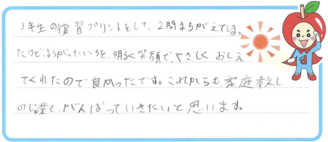 3年生の復習プリントをして、2問まちがえてしまっ
たけど、まちがったところを、明るく笑顔でやさしくおしえ
てくれたので良かったです。これからも家庭教し
の先生と、がんばっていきたいと思います。